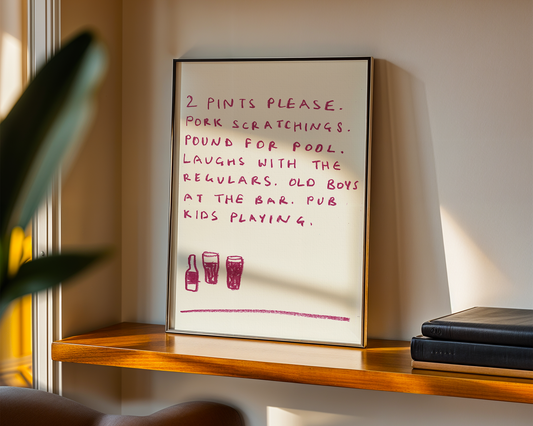 2 PINTS PLEASE.
PORK SCRATCHINGS.
POUND FOR POOL.
LAUGHS WITH THE
REGULARS. OLD BOYS
AT THE BAR. PUB
KIDS PLAYING.